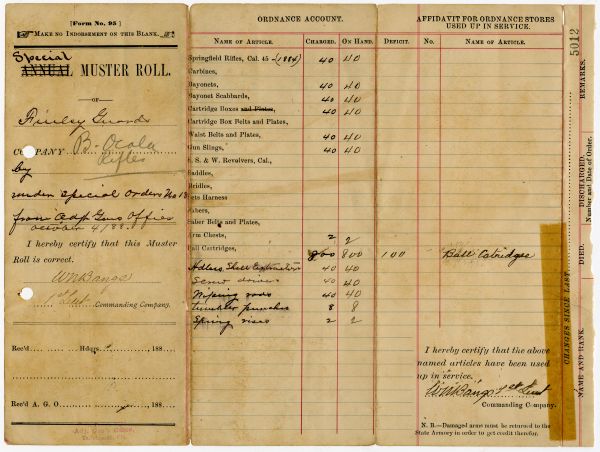 [Form No. 95]
MAKE NO INDORSEMENT ON THIS BLANK.
Special
ANNUAL MUSTER ROLL.
—OF—
Finley Guards
COMPANY B- Ocala
Rifles
by
under Special Orders No 13
from Adjt Gens Office
October 4/88
I hereby certify that this Muster
Roll is correct.
WMBangs
1st Lieut Commanding Company.
Rec'd Hdqrs. 188
Rec'd A. G. O. 188
Adj. Gen's Office,
ORDNANCE ACCOUNT.
NAME OF ARTICLE. CHARGED. ON HAND. DEFICIT.
Springfield Rifles, Cal. 45 - (1884) 40 40
Carbines,
Bayonets, 40 40
Bayonet Scabbards, 40 40
Cartridge Boxes and Plates, 40 40
Cartridge Box Belts and Plates,
Waist Belts and Plates, 40 40
Gun Slings, 40 40
S. & W. Revolvers, Cal.,
Saddles,
Bridles,
Sets Harness
Sabers,
Saber Belts and Plates,
Arm Chests, 2 2
Ball Cartridges, 800 800 100
Adlers Shell Extractors 40 40
Screw drivers 40 40
Wiping rods 40 40
tumbler punches 8 8
Spring vises 2 2
AFFIDAVIT FOR ORDNANCE STORES
USED UP IN SERVICE.
No. NAME OF ARTICLE.
Ball Catridges
I hereby certify that the above
named articles have been used
up in service.
WMBangs 1st Lieut
Commanding Company.
N. B.—Damaged arms must be returned to the
State Armory in order to get credit therefor.
5012
REMARKS.
DISCHARGED.
Number and Date of Order.
DIED.
CHANGES SINCE LAST
NAME AND RANK.